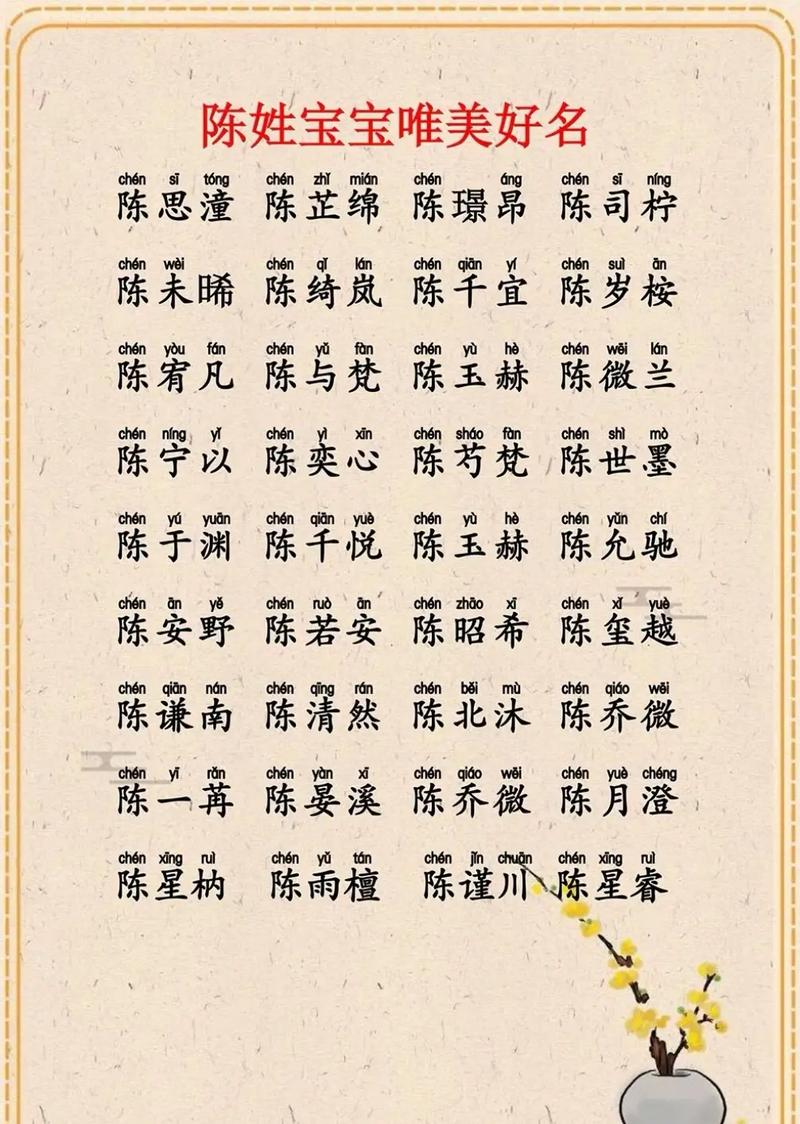 陈姓宝宝唯美好名
chén sī tóng chén zhǐ mián chén áng chén sī níng
陈思潼 陈芷绵 陈璟昂 陈司柠
chén wèi chén qǐ lán chén qiān yí chén suì ān
陈未晞 陈绮岚 陈千宜 陈岁桉
chén yòu fán chén yǔ fàn chén yù hè chén wēi lán
陈宥凡 陈与梵 陈玉赫 陈微兰
chén níng yǐ chén yì xīn chén sháo fàn chén shì mò
陈宁以 陈奕心 陈芍梵 陈世墨
chén yú yuān chén qiān yuè chén yù hè chén yǔn chí
陈于渊 陈千悦 陈玉赫 陈允驰
chén ān yě chén ruò ān chén zhāo xī chén xǐ yuè
陈安野 陈若安 陈昭希 陈玺越
chén qiān nán chén qīng rán chén běi mù chén qiáo wēi
陈谦南 陈清然 陈北沐 陈乔微
chén yī rǎn chén yàn xī chén qiáo wēi chén yuè chéng
陈一苒 陈晏溪 陈乔微 陈月澄
chén xīng ruì chén yǔ tán chén jǐn chuān chén xīng ruì
陈星枘 陈雨檀 陈谨川 陈星睿